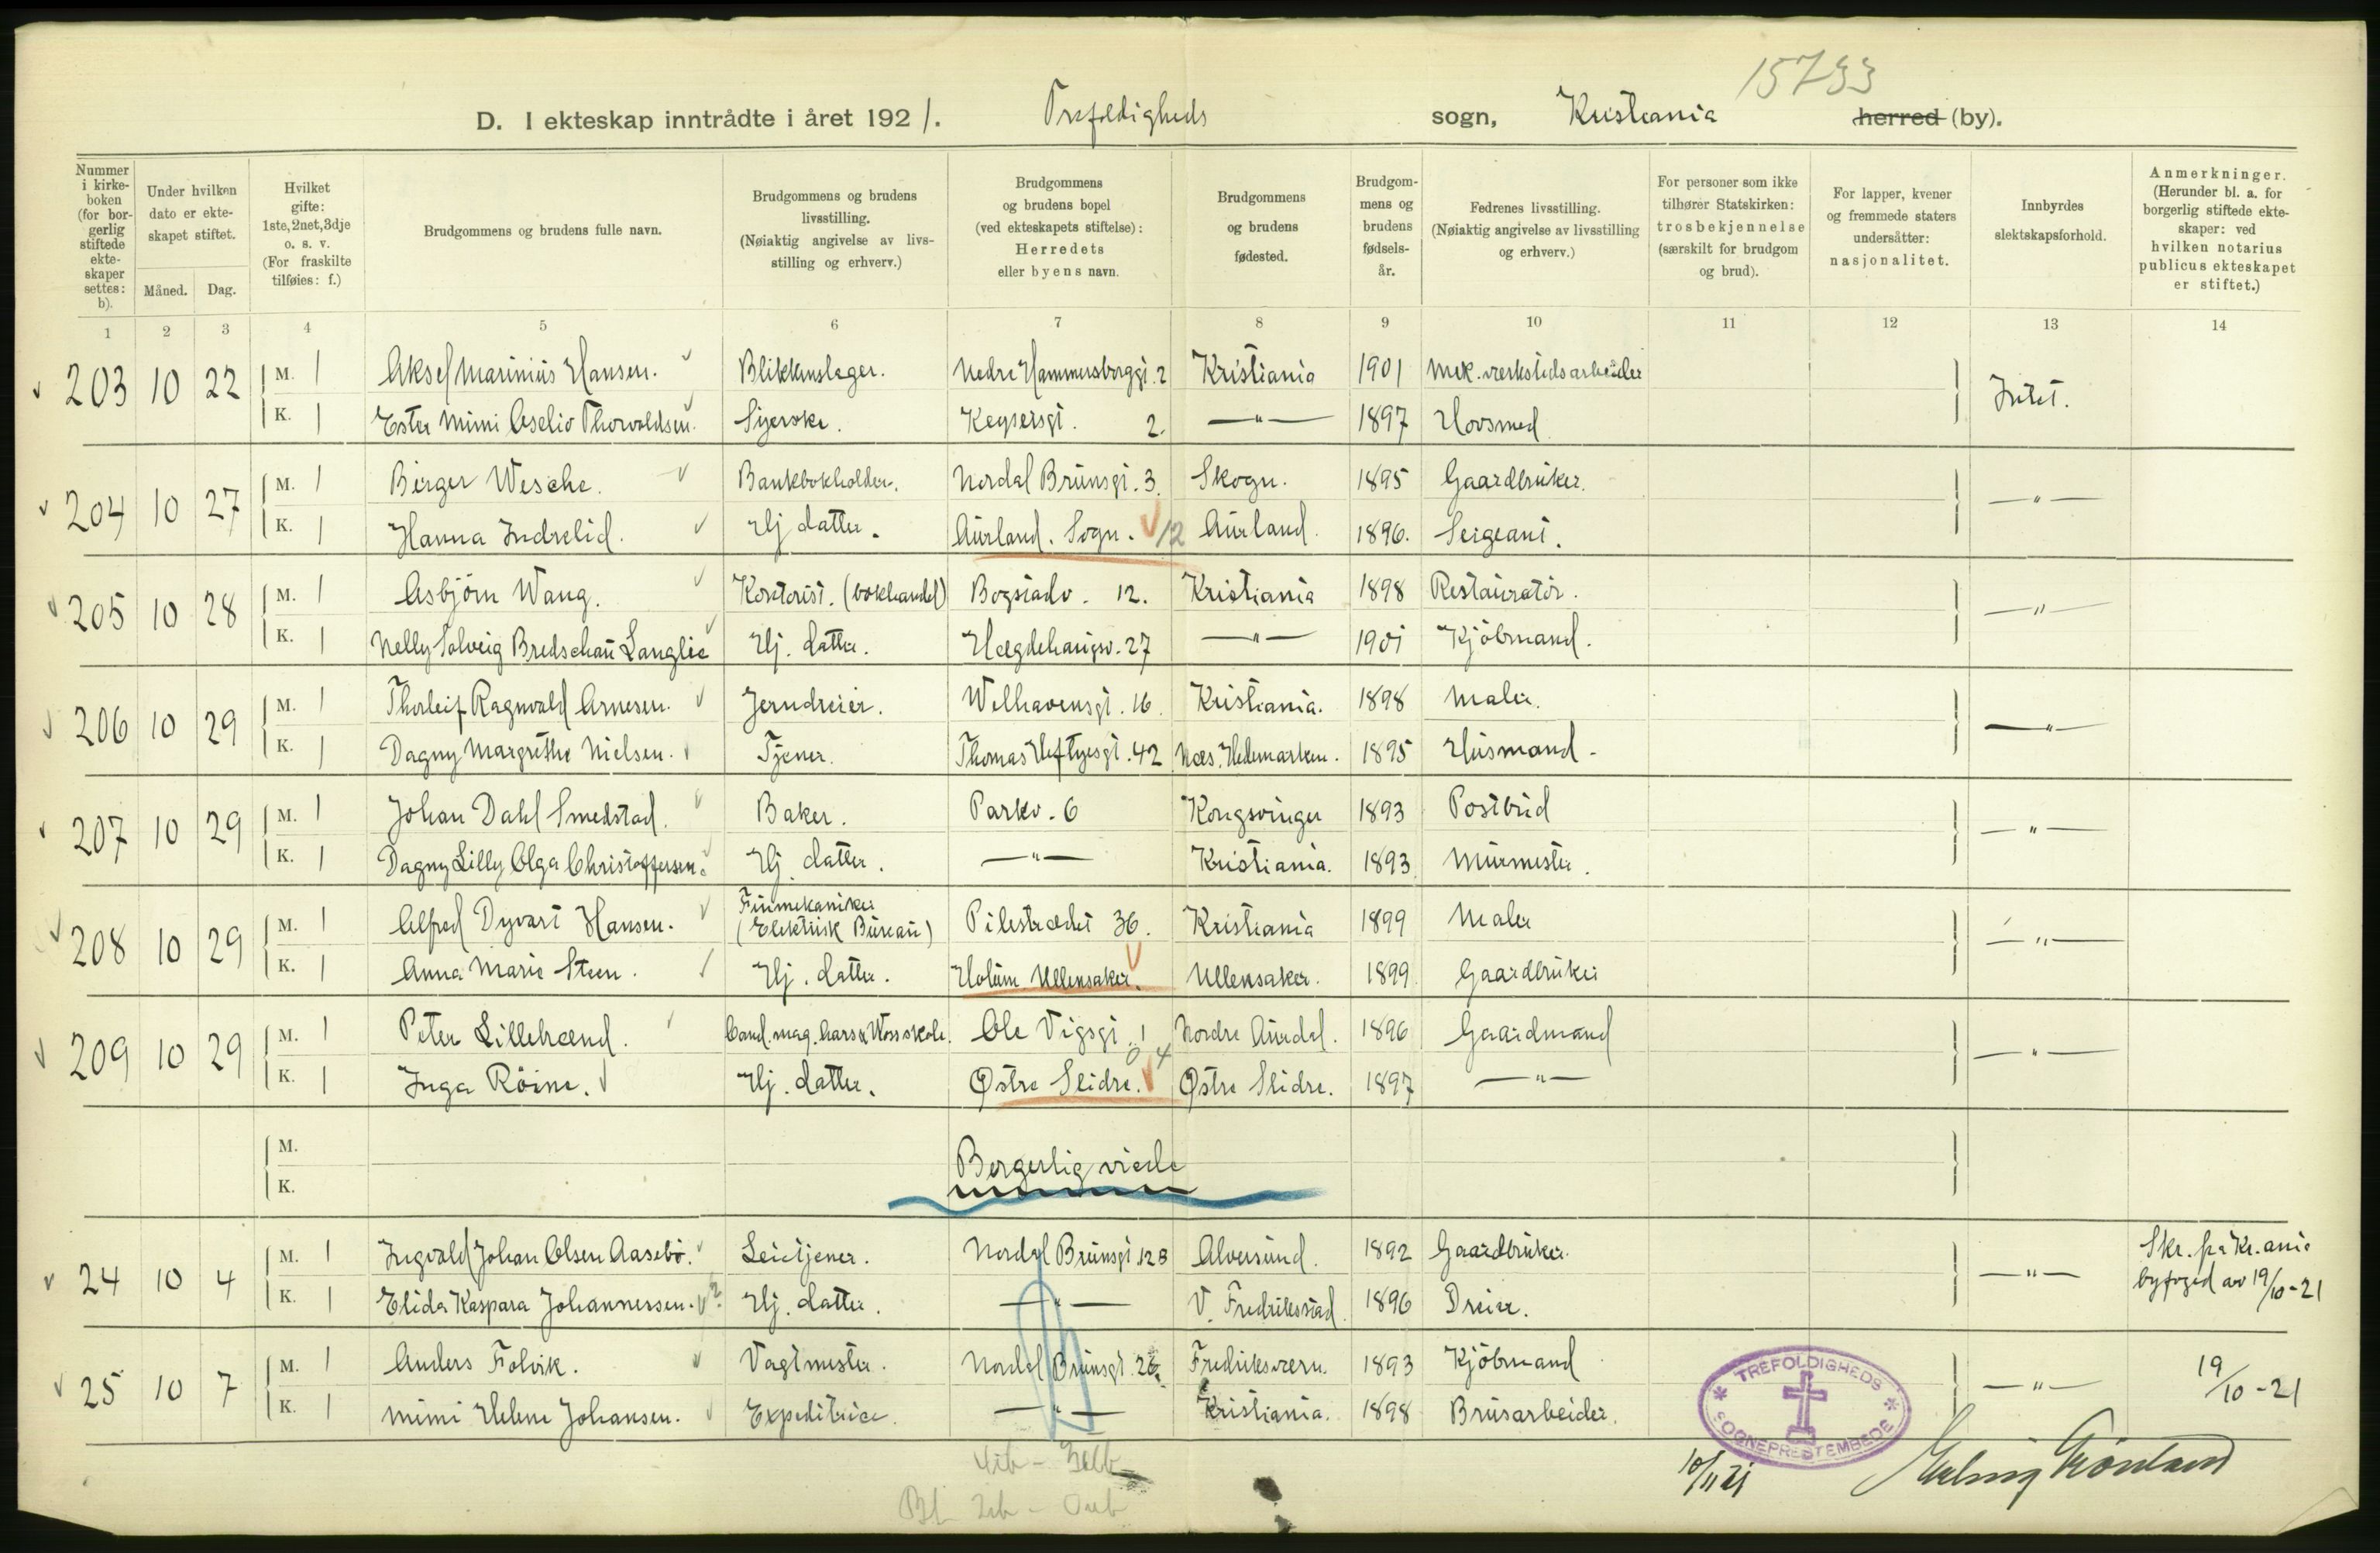 15733
D. I ekteskap inntrådte i året 1921. Trefoldigheds sogn, Kristiania herred (by).
Nummer i kirke-boken (for bor-gerlig stiftede ekte-skaper settes: b).
Under hvilken dato er ekte-skapet stiftet.
Måned. Dag.
Hvilket gifte: 1ste, 2net, 3dje o. s. v. (For fraskilte tilføies: f.)
Brudgommens og brudens fulle navn.
Brudgommens og brudens livsstilling. (Nøiaktig angivelse av livs-stilling og erhverv.)
Brudgommens og brudens bopel (ved ekteskapets stiftelse): Herredets eller byens navn.
Brudgommens og brudens fødested.
Brudgom-mens og brudens fødsels-år.
Fedrenes livsstilling. (Nøiaktig angivelse av livsstilling og erhverv.)
For personer som ikke tilhører Statskirken: trosbekjennelse (særskilt for brudgom og brud).
For lapper, kvener og fremmede staters undersåtter: nasjonalitet.
Innbyrdes slektskapsforhold.
Anmerkninger. (Herunder bl. a. for borgerlig stiftede ekte-skaper: ved hvilken notarius publicus ekteskapet er stiftet.)
1 2 3 4 5 6 7 8 9 10 11 12 13 14
203 10 22 M. 1 Aksel Marinius Hansen. Blikkenslager. Nedre Hammersborggt. 2 Kristiania 1901 Mek. verkstedsarbeider Intet.
K. 1 Ester Mimi Aselio Thorvaldsen. Syerske. Keysersgt. 2. —"— 1897 Hovsmed
204 10 27 M. 1 Birger Wesche. Bankbokholder. Nordal Brunsgt. 3. Skogn. 1895 Gaardbruker. —"—
K. 1 Hanna Indrelid. Hj. datter. Aurland. Sogn. 12 Aurland. 1896. Sergeant.
205 10 28 M. 1 Asbjörn Wang. Kontorist. (bokhandel) Bogstadv. 12. Kristiania 1898 Restauratör. —"—
K. 1 Nelly Solveig Bredschau Langlie Hj. datter. Hegdehaugsv. 27 —"— 1901 Kjöbmand.
206 10 29 M. 1 Thorleif Ragnvald Arnesen. Jerndreier. Welhavensgt. 16. Kristiania. 1898 Maler. —"—
K. 1 Dagny Margrethe Nielsen. Tjener. Thomas Heftyesgt. 42 Næs. Hedemarken. 1895 Husmand.
207 10 29 M. 1 Johan Dahl Smedstad. Baker. Parkv. 6 Kongsvinger 1893 Postbud —"—
K. 1 Dagny Lilly Olga Christoffersen. Hj. datter. —"— Kristiania. 1893. Murmester.
208 10 29 M. 1 Alfred Dyvart Hansen. Finmekaniker (Elektrisk Bureau) Pilestrædet 36. Kristiania 1899 Maler —"—
K. 1 Anna Marie Steen. Hj. datter. Holum Ullensaker. Ullensaker. 1899 Gaardbruker
209 10 29 M. 1 Peter Lillebrænd. Cand. mag. Aars & Voss skole. Ole Vigsgt. 1 Nordre Aurdal. 1896 Gaardmand —"—
K. 1 Inga Röine. Hj. datter. Østre Slidre. 04 Østre Slidre. 1897 —"—
M.
K.
Borgerlig viede
24 10 4 M. 1 Ingvald Johan Olsen Aasebö. Leietjener. Nordal Brunsgt. 12 B Alversund. 1892 Gaardbruker. —"— Skr. fra Kr.ania byfoged av 19/10-21
K. 1 Elida Kaspara Johannessen. ? Hj. datter. —"— V. Fredrikstad. 1896 Dreier.
25 10 7 M. 1 Anders Folvik. Vagtmester. Nordal Brunsgt. 26 Fredriksværn. 1893 Kjöbmand —"— 19/10-21
K. 1 Mimi Helene Johansen. Expeditrice. —"— Kristiania. 1898 Brusarbeider.
TREFOLDIGHEDS SOGNEPRESTEMBEDE
10/11 21